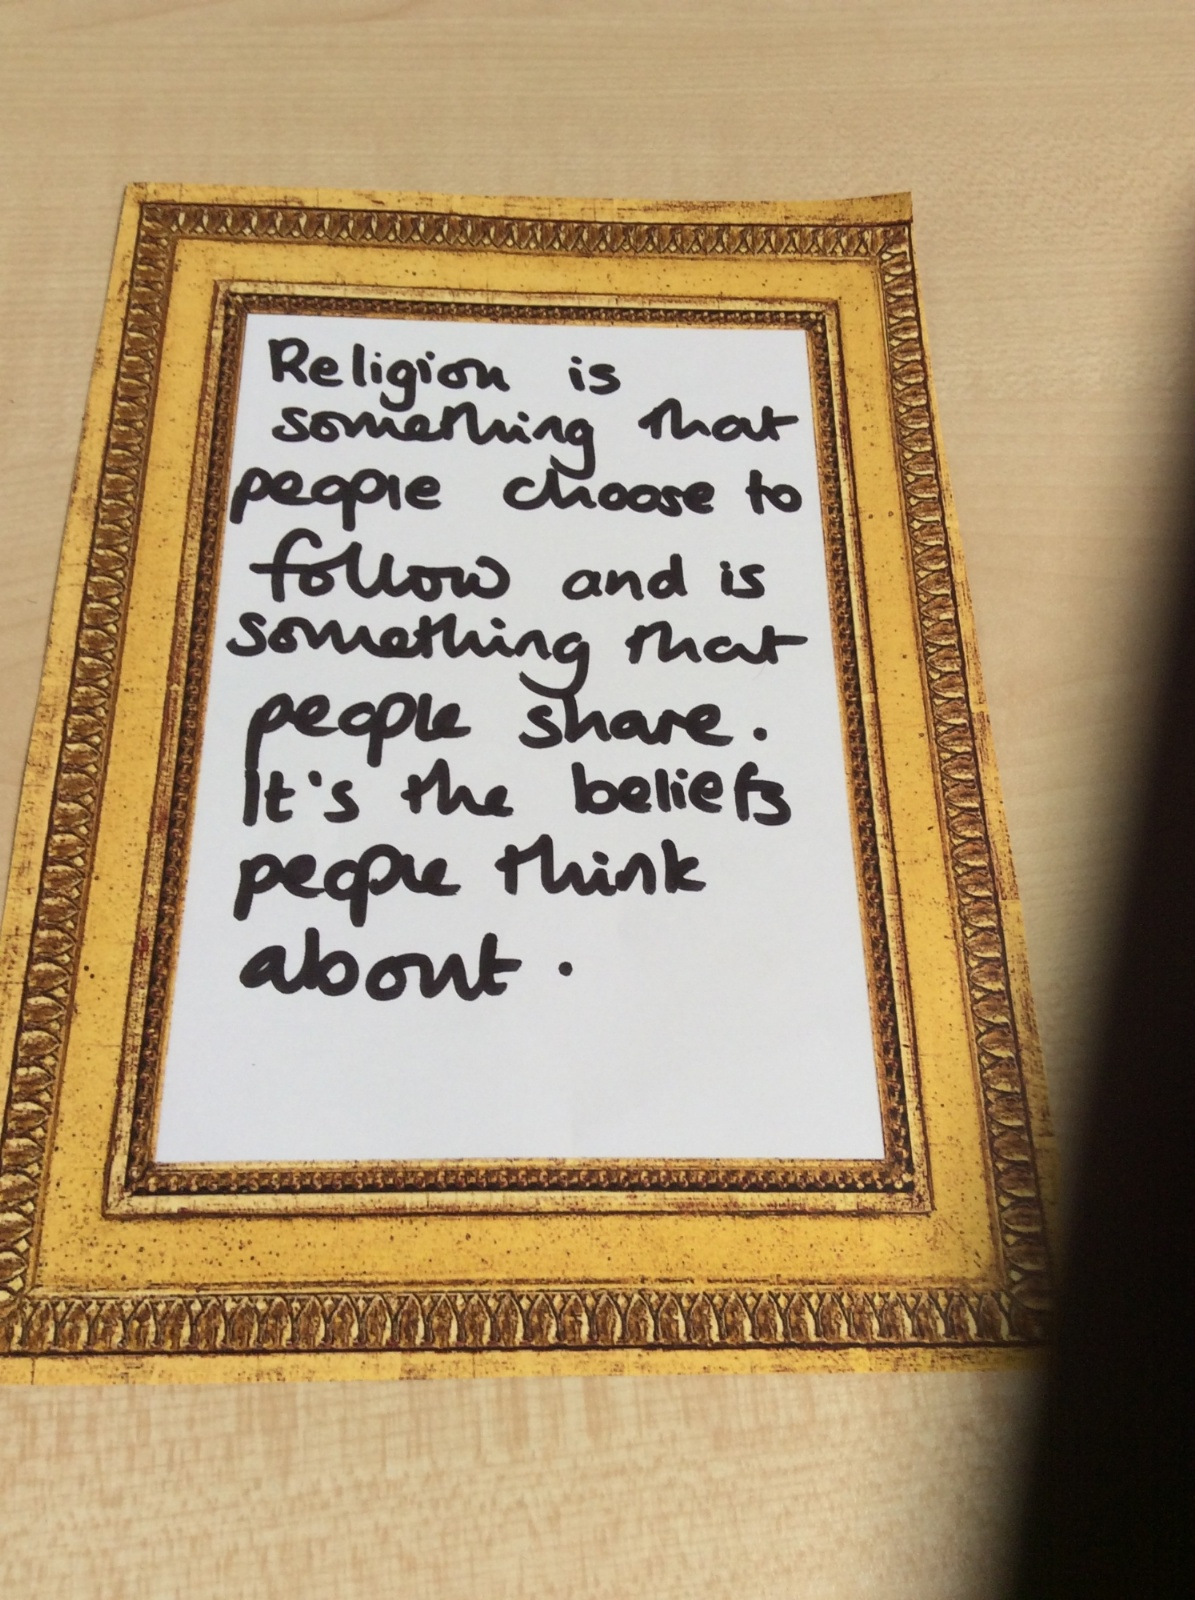 Religion is
something that
people choose to
follow and is
something that
people share.
It's the beliefs
people think
about.